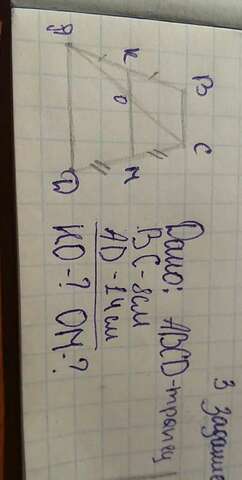 3 Задание
Дано: ABCD-трапец
BC-8см
AD-14см
КО-? ОМ-?
A
K
B
O
D
M
C